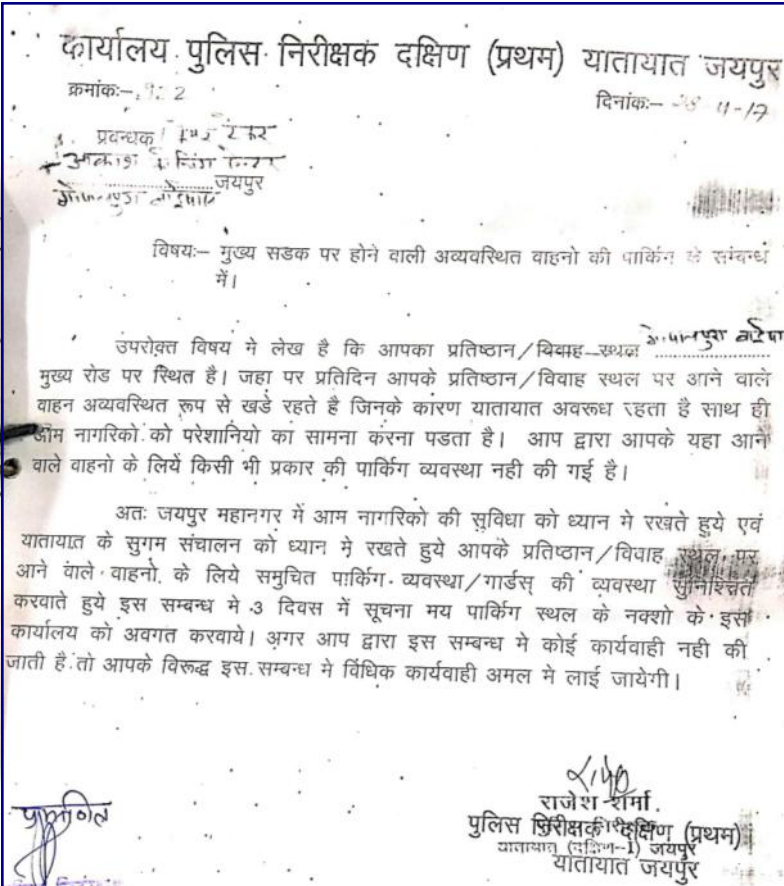 कार्यालय पुलिस निरीक्षक दक्षिण (प्रथम) यातायात जयपुर
क्रमांकः–
दिनांकः– 11-17
प्रवन्धक
आकाश
जयपुर
विषयः– मुख्य सडक पर होने वाली अव्यवस्थित वाहनो की पार्किग के संबन्ध
में।
उपरोक्त विषय मे लेख है कि आपका प्रतिष्ठान/विवाह–स्थल गोपालपुरा
मुख्य रोड पर स्थित है। जहा पर प्रतिदिन आपके प्रतिष्ठान/विवाह स्थल पर आने वाले
वाहन अव्यवस्थित रूप से खडे रहते है जिनके कारण यातायात अवरूध रहता है साथ ही
आम नागरिको को परेशानियो का सामना करना पडता है। आप द्वारा आपके यहा आने
वाले वाहनो के लियें किसी भी प्रकार की पार्किग व्यवस्था नही की गई है।
अतः जयपुर महानगर में आम नागरिको की सुविधा को ध्यान मे रखते हुये एवं
यातायात के सुगम संचालन को ध्यान मे रखते हुये आपके प्रतिष्ठान/विवाह स्थल पर
आने वाले वाहनो के लिये समुचित पार्किग व्यवस्था/गार्डस् की व्यवस्था सुनिश्चित
करवाते हुये इस सम्बन्ध मे 3 दिवस में सूचना मय पार्किग स्थल के नक्शो के इस
कार्यालय को अवगत करवाये। अगर आप द्वारा इस सम्बन्ध मे कोई कार्यवाही नही की
जाती है तो आपके विरूद्ध इस सम्बन्ध मे विधिक कार्यवाही अमल मे लाई जायेगी।
राजेश शर्मा
पुलिस निरीक्षक दक्षिण (प्रथम)
यातायात (दक्षिण-1) जयपुर
यातायात जयपुर